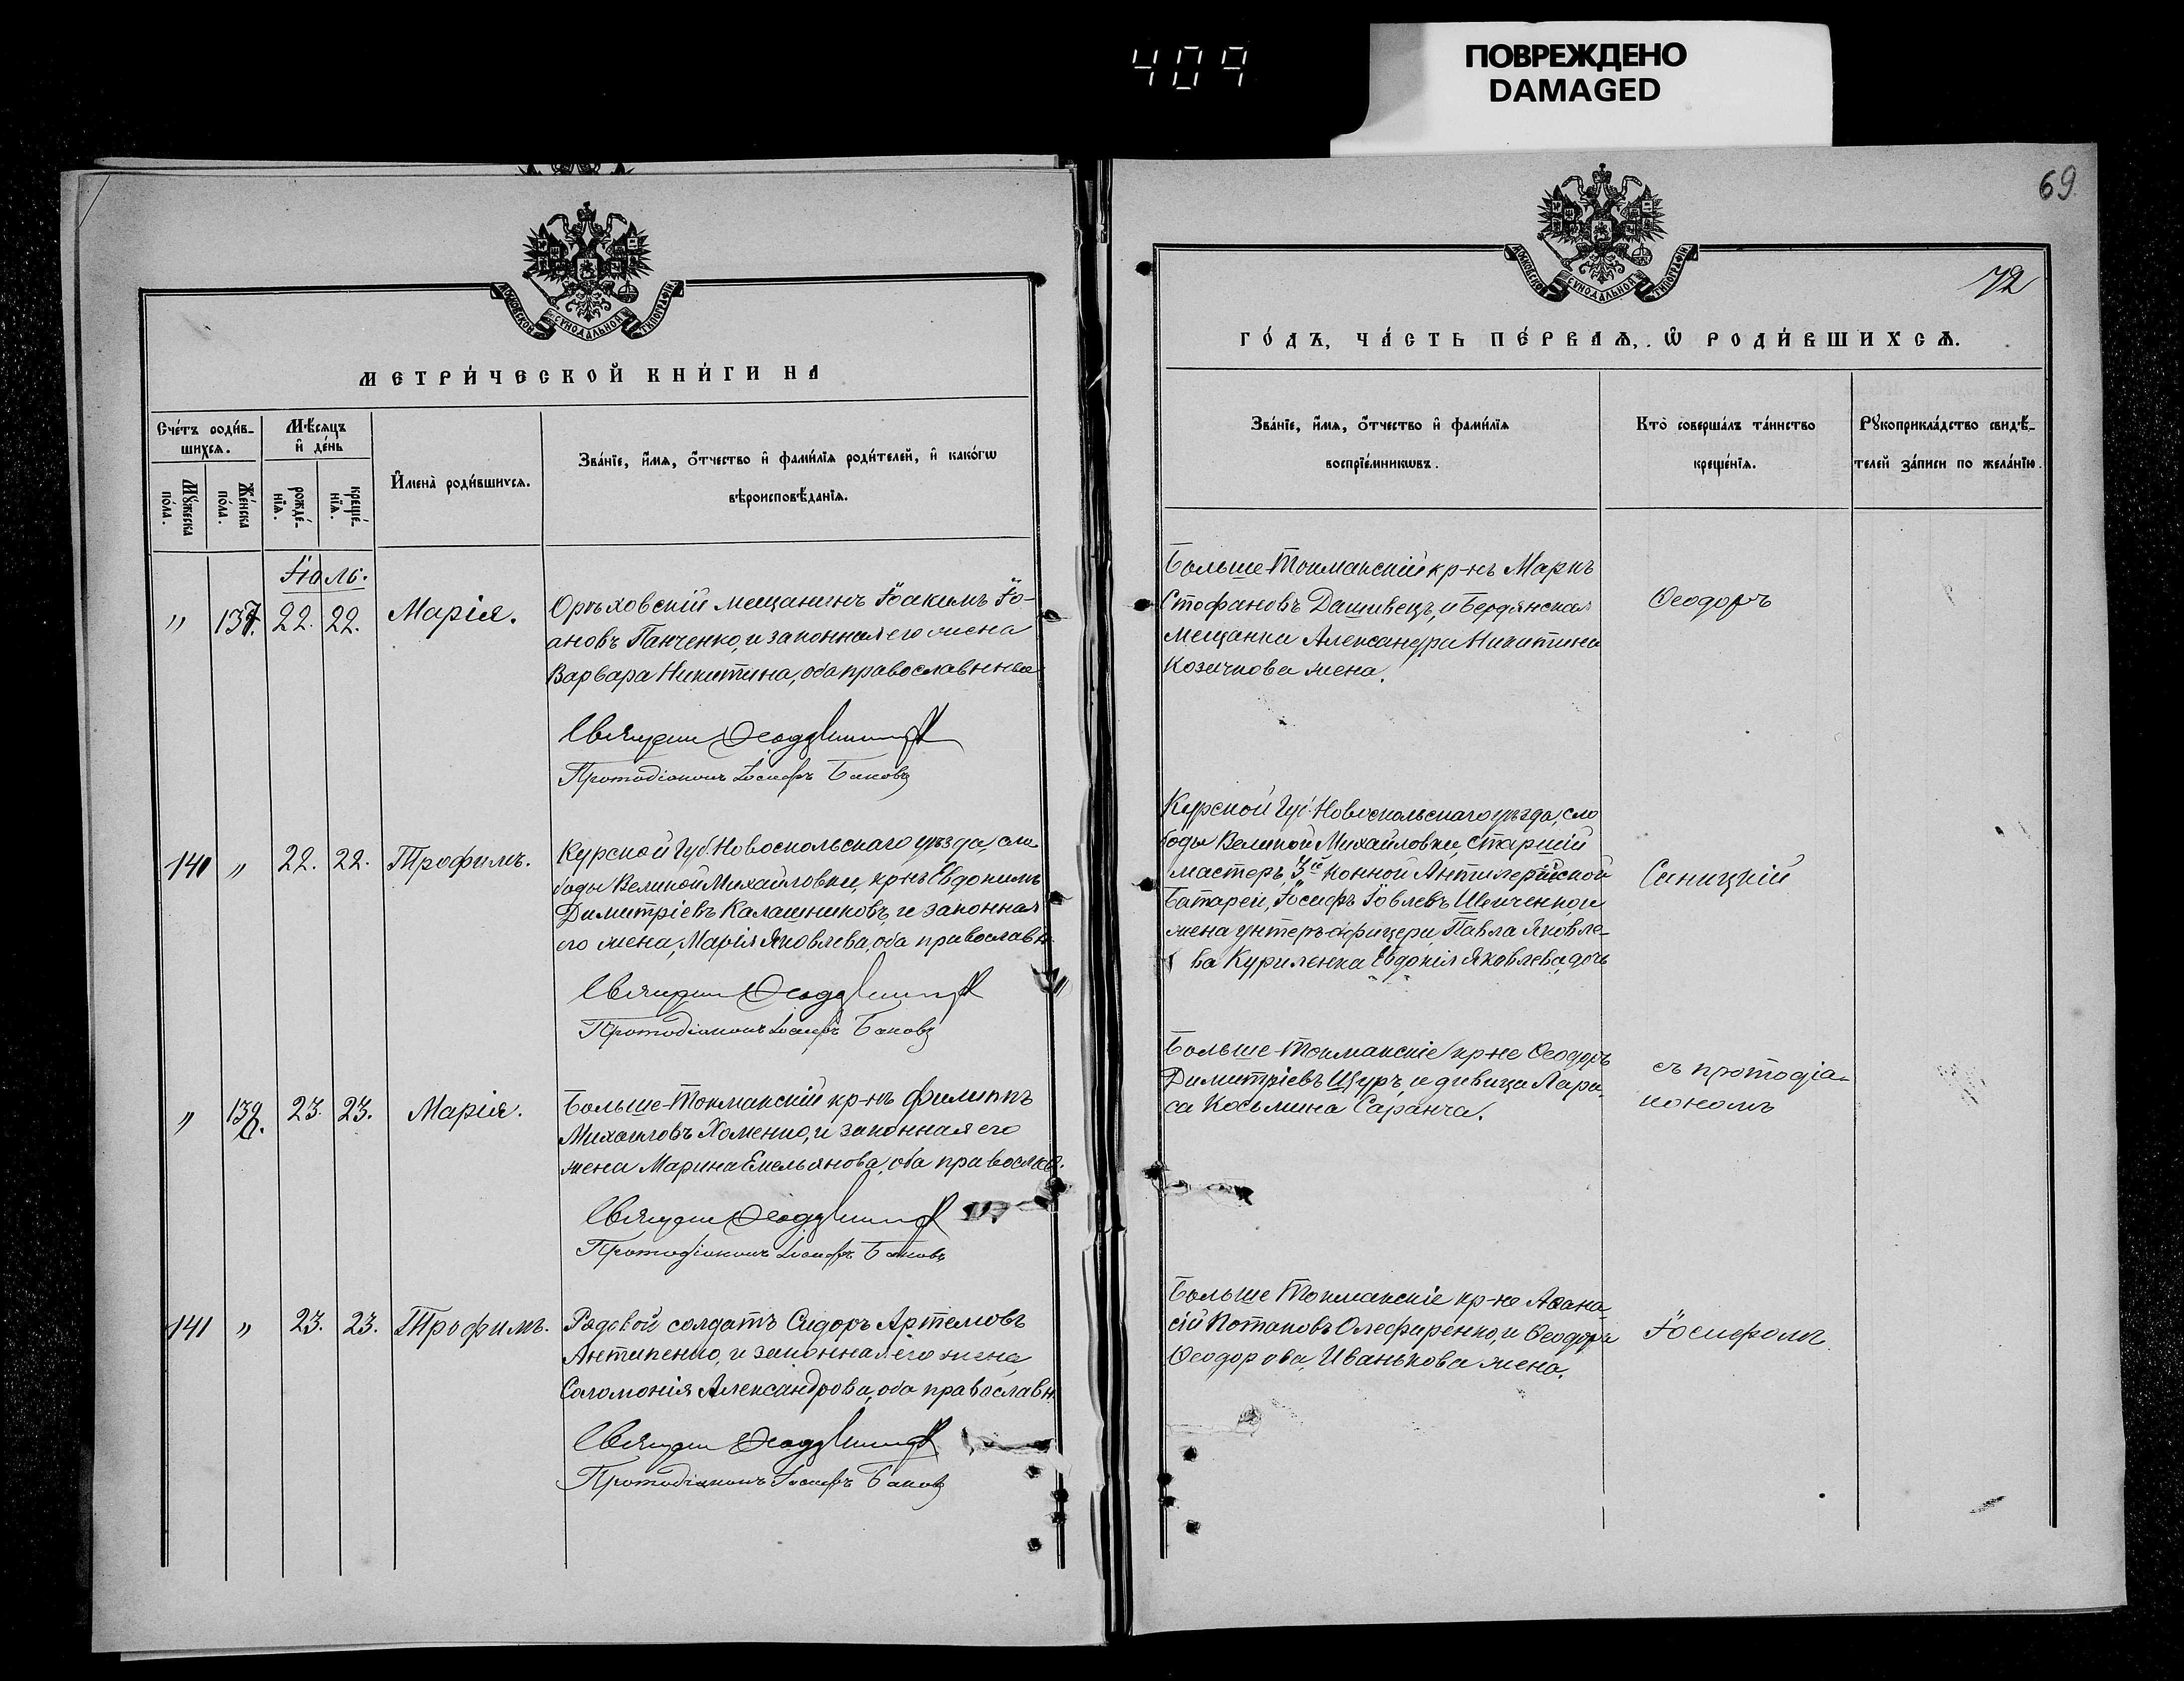 409
ПОВРЕЖДЕНО
DAMAGED
МОСКОВСКОЙ СУНОДАЛЬНОЙ ТИПОГРАФІИ
МЕТРИ́ЧЕСКОЙ КНИ́ГИ НА
Сче́тъ роди́в-
шихсѧ.
Мѣ́сѧцъ
и҆ де́нь
И҆мена̀ роди́вшихсѧ.
Зва́нїе, и҆́мѧ, ѻ҆́тчество и҆ фами́лїѧ роди́телей, и҆ како́гѡ
вѣроисповѣ́данїѧ.
Мꙋ́жеска
по́ла.
Же́нска
по́ла.
рожде́-
нїѧ.
креще́-
нїѧ.
Іюль.
" 137. 22. 22. Марія.
Орѣховскій мещанинъ Іоакимъ Іо-
ановъ Панченко, и законная его жена
Варвара Никитина, оба православные
Священ Ѳеод Синицкій
Протодіаконъ Іосифъ Баковъ
140 " 22. 22. Трофимъ.
Курской Губ. Новоскольскаго уѣзда, сло
боды Великой Михайловки, кр-нъ Евдокимъ
Димитріевъ Калашниковъ, и законная
его жена, Марія Яковлева, оба православн
Священ Ѳеод Синицкій
Протодіаконъ Іосифъ Баковъ
" 138. 23. 23. Марія.
Больше-Токмакскій кр-нъ Филиппъ
Михаиловъ Хоменко, и законная его
жена Марина Емельянова, оба православ.
Священ Ѳеод Синицкій
Протодіаконъ Іосифъ Баковъ
141 " 23. 23. Трофимъ.
Рядовой солдатъ Сидоръ Артемовъ
Антипенко, и законная его жена
Соломонія Александрова, оба православн.
Священ Ѳеод Синицкій
Протодіаконъ Іосифъ Баковъ
69.
72
МОСКОВСКОЙ СУНОДАЛЬНОЙ ТИПОГРАФІИ
ГО́ДЪ, ЧА́СТЬ ПЕ́РВАѦ, Ѡ РОДИ́ВШИХСѦ.
Зва́нїе, и҆́мѧ, ѻ҆́тчество и҆ фами́лїѧ
воспрїе́мникѡвъ.
Кто̀ соверша́лъ та́инство
креще́нїѧ.
Рꙋкоприкла́дство свидѣ́-
телей за́писи по жела́нїю.
Больше-Токмакскій кр-нъ Маркъ
Стефановъ Дашивецъ, и Бердянская
мещанка Александра Никитина
Козачкова жена.
Ѳеодоръ
Курской Губ. Новоскольскаго уѣзда, сло
боды Великой Михайловки, старшій
мастеръ, 3-й Конной Антилерійской
Батареи, Іосифъ Іовлевъ Шевченко, и
жена унтеръ-офицера Павла Яковле-
ва Куриленка Евдокія Яковлева, дочь
Синицкій
Больше-Токмакскіе кр-не Ѳеодоръ
Димитріевъ Щуръ, и дѣвица Лари
са Косьмина Саранча.
съ протодіа-
кономъ
Больше Токмакскіе кр-не Аѳана
сій Потаповъ Олефиренко, и Ѳеодора
Ѳеодорова, Иванькова жена.
Іосифомъ